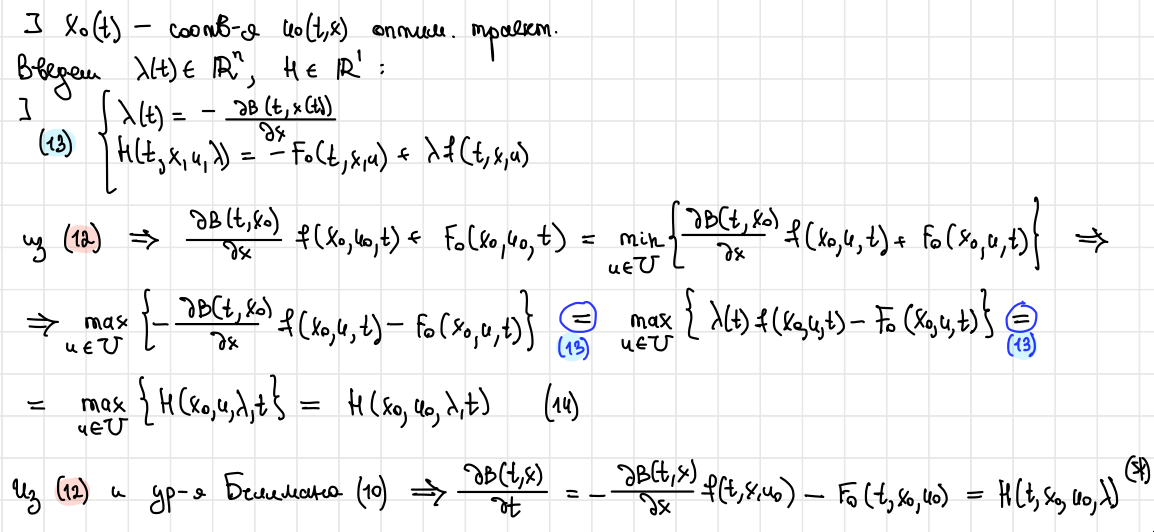 ∃ x₀(t) – соотв-я u₀(t,x) оптим. траект.
Введем λ(t) ∈ ℝⁿ, H ∈ ℝ¹ :
∃ (13) { λ(t) = − ∂B(t,x(t))/∂x
H(t,x,u,λ) = −F₀(t,x,u) + λf(t,x,u)
из (12) ⇒ ∂B(t,x₀)/∂x f(x₀,u₀,t) + F₀(x₀,u₀,t) = min u∈U { ∂B(t,x₀)/∂x f(x₀,u,t) + F₀(x₀,u,t) } ⇒
⇒ max u∈U { −∂B(t,x₀)/∂x f(x₀,u,t) − F₀(x₀,u,t) } = (13) max u∈U { λ(t) f(x₀,u,t) − F₀(x₀,u,t) } = (13)
= max u∈U { H(x₀,u,λ,t } = H(x₀,u₀,λ,t) (14)
Из (12) и ур-я Беллмана (10) ⇒ ∂B(t,x)/∂t = −∂B(t,x)/∂x f(t,x,u₀) − F₀(t,x₀,u₀) = H(t,x₀,u₀,λ)